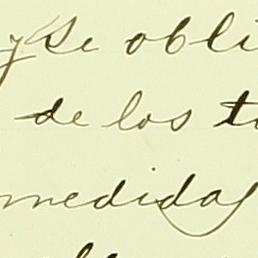 y se obli
de los t
medidas